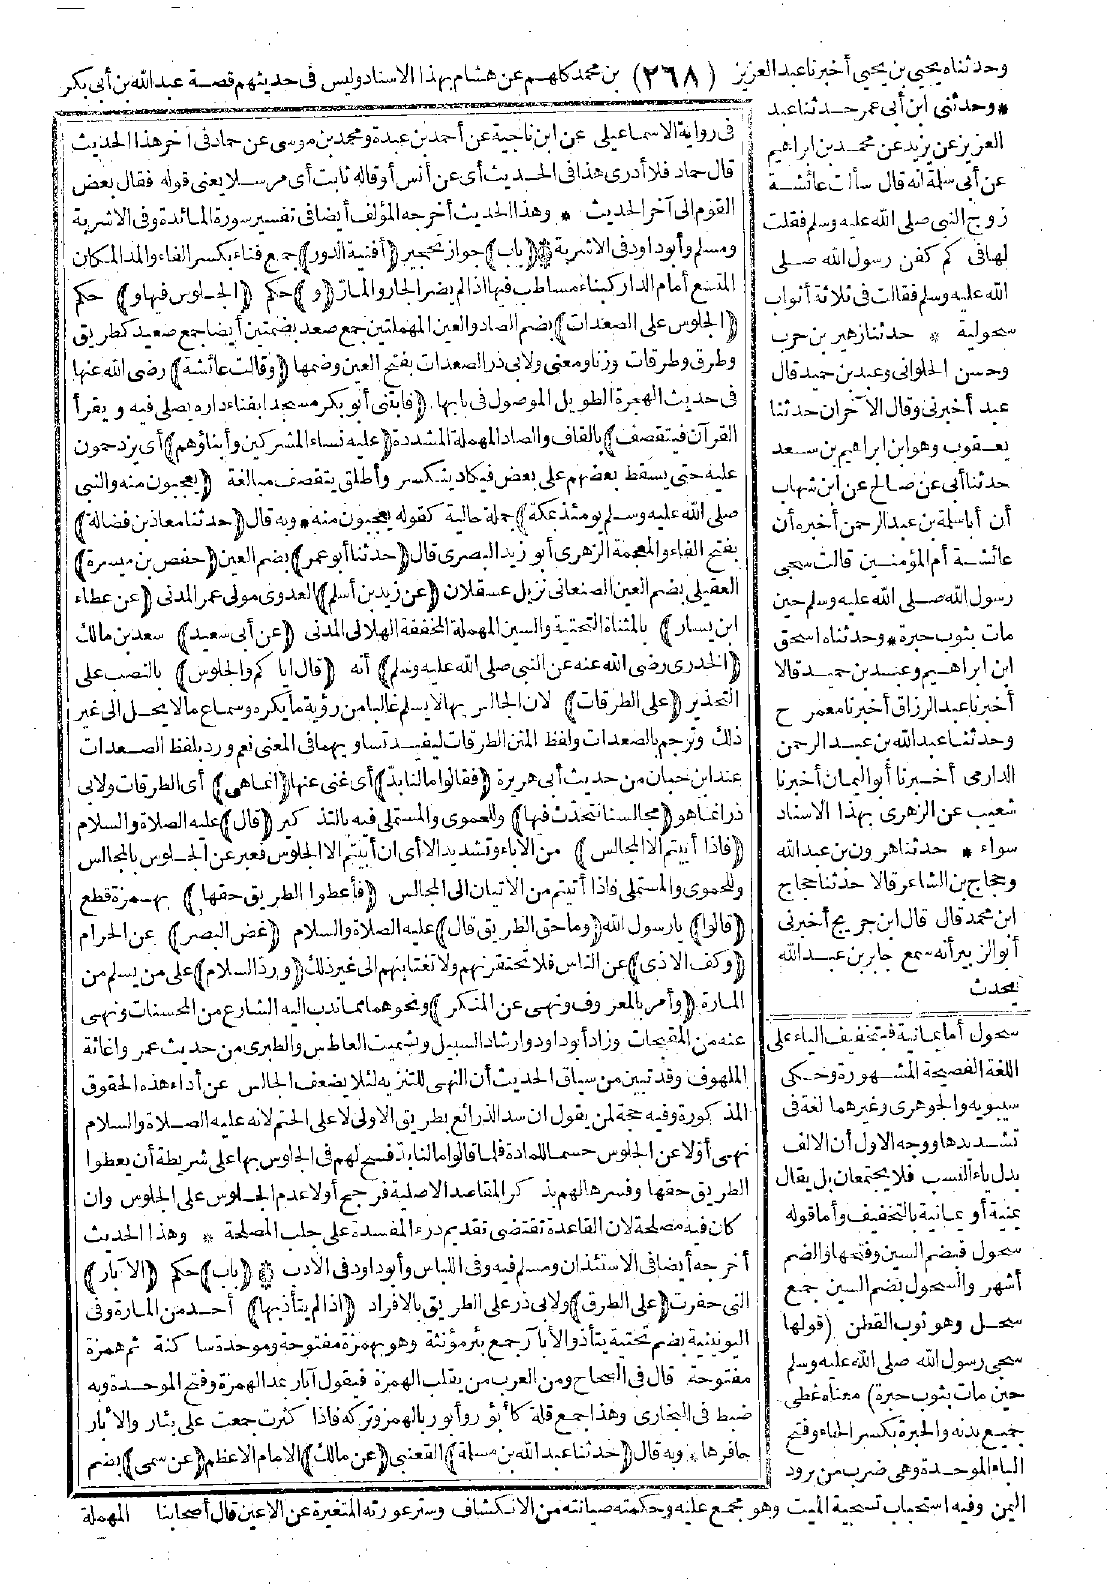 وحدثناه يحيي بن يحيي أخبرنا عبد العزيز (٢٦٨) بن محمد كلهم عن هشام بهذا الاسناد وليس فى حديثهم قصة عبد الله بن أبى بكر
* وحدثنى ابن أبى عمر حدثنا عبد
العزيز عن يزيد عن محمد بن ابراهيم
عن أبى سلمة انه قال سألت عائشة
زوج النبى صلى الله عليه وسلم فقلت
لها فى كم كفن رسول الله صلى
الله عليه وسلم فقالت فى ثلاثة أثواب
سحولية * حدثنا زهير بن حرب
وحسن الحلوانى وعبد بن حميد قال
عبد أخبرنى وقال الآخران حدثنا
يعقوب وهو ابن ابراهيم بن سعد
حدثنا أبى عن صالح عن ابن شهاب
أن أباسلمة بن عبد الرحمن أخبره أن
عائشة أم المؤمنين قالت سجى
رسول الله صلى الله عليه وسلم حين
مات بثوب حبرة * وحدثناه اسحق
ابن ابراهيم وعبد بن حميد قالا
أخبرنا عبد الرزاق أخبرنا معمر ح
وحدثنا عبد الله بن عبد الرحمن
الدارمى أخبرنا أبو اليمان أخبرنا
شعيب عن الزهرى بهذا الاسناد
سواء * حدثنا هرون بن عبد الله
وحجاج بن الشاعر قالا حدثنا حجاج
ابن محمد قال قال ابن جريج أخبرنى
أبو الزبير أنه سمع جابر بن عبد الله
يحدث
سحول أما يمانية فبتخفيف الياء على
اللغة الفصيحة المشهورة وحكى
سيبويه والجوهرى وغيرهما لغة فى
تشديدها ووجه الاول أن الالف
بدل ياء النسب فلا يجتمعان بل يقال
يمنية أو يمانية بالتخفيف وأما قوله
سحول فبضم السين وفتحها والضم
أشهر والسحول بضم السين جمع
سحل وهو ثوب القطن (قولها
سجى رسول الله صلى الله عليه وسلم
حين مات بثوب حبرة) معناه غطى
جميع بدنه والحبرة بكسر الحاء وفتح
الباء الموحدة وهى ضرب من برود
اليمن وفيه استحباب تسجية الميت وهو مجمع عليه وحكمته صيانته من الانكشاف وستر عورته المتغيرة عن الاعين قال أصحابنا
فى رواية الاسماعيلى عن ابن ناجية عن أحمد بن عبدة ومحمد بن موسى عن حماد فى آخر هذا الحديث
قال حماد فلا أدرى هذا فى الحديث أى عن أنس أو قاله ثابت أى مرسلا يعنى قوله فقال بعض
القوم الى آخر الحديث * وهذا الحديث أخرجه المؤلف أيضا فى تفسير سورة المائدة وفى الاشربة
ومسلم وأبو داود فى الاشربة * (باب) جواز تحجير (أفنية الدور) جمع فناء بكسر الفاء والمد المكان
المتسع أمام الدار كبناء مساطب فيها اذا لم يضر الجار والمار (و) حكم (الجلوس فيها و) حكم
(الجلوس على الصعدات) بضم الصاد والعين المهملتين جمع صعد بضمتين أيضا جمع صعيد كطريق
وطرق وطرقات وزنا ومعنى ولابى ذر الصعدات بفتح العين وضمها (وقالت عائشة) رضى الله عنها
فى حديث الهجرة الطويل الموصول فى بابها (فابتنى أبو بكر مسجدا بفناء داره يصلى فيه ويقرأ
القرآن فيتقصف) بالقاف والصاد المهملة المشددة (عليه نساء المشركين وأبناؤهم) أى يزدحمون
عليه حتى يسقط بعضهم على بعض فيكاد ينكسر وأطلق يتقصف مبالغة (يعجبون منه والنبى
صلى الله عليه وسلم يومئذ بمكة) جملة حالية كقوله يعجبون منه * وبه قال (حدثنا معاذ بن فضالة)
بفتح الفاء والمعجمة الزهرى أبو زيد البصرى قال (حدثنا أبو عمر) بضم العين (حفص بن ميسرة)
العقيلى بضم العين الصنعانى نزيل عسقلان (عن زيد بن أسلم) العدوى مولى عمر المدنى (عن عطاء
ابن يسار) بالمثناة التحتية والسين المهملة المخففة الهلالى المدنى (عن أبى سعيد) سعد بن مالك
(الخدرى رضى الله عنه عن النبى صلى الله عليه وسلم) أنه (قال ايا كم والجلوس) بالنصب على
التحذير (على الطرقات) لان الجالس بها لا يسلم غالبا من رؤية ما يكره وسماع ما لا يحل الى غير
ذلك وترجم بالصعدات ولفظ المتن الطرقات ليفيد تساويهما فى المعنى نعم ورد بلفظ الصعدات
عند ابن حبان من حديث أبى هريرة (فقالوا مالنا بد) أى غنى عنها (انما هى) أى الطرقات ولابى
ذر انما هو (مجالسنا نتحدث فيها) وللحموى والمستملى فيه بالتذكير (قال) عليه الصلاة والسلام
(فاذا أبيتم الا المجالس) من الاباء وتشديد الا أى ان أبيتم الا الجلوس فعبر عن الجلوس بالمجالس
وللحموى والمستملى فاذا أتيتم من الاتيان الى المجالس (فأعطوا الطريق حقها) بهمزة قطع
(قالوا) يا رسول الله (وما حق الطريق قال) عليه الصلاة والسلام (غض البصر) عن الحرام
(وكف الاذى) عن الناس فلا تحتقرنهم ولا تغتابنهم الى غير ذلك (ورد السلام) على من يسلم من
المارة (وأمر بالمعروف ونهى عن المنكر) ونحوهما مما ندب اليه الشارع من المحسنات ونهى
عنه من المقبحات وزاد أبو داود وارشاد السبيل وتشميت العاطس والطبرى من حديث عمر واغاثة
الملهوف وقد تبين من سياق الحديث أن النهى للتنزيه لئلا يضعف الجالس عن أداء هذه الحقوق
المذكورة وفيه حجة لمن يقول ان سد الذرائع بطريق الاولى لا على الحتم لانه عليه الصلاة والسلام
نهى أولا عن الجلوس حسما للمادة فلما قالوا مالنا بد فسح لهم فى الجلوس بها على شريطة أن يعطوا
الطريق حقها وفسرها لهم بذكر المقاصد الاصلية فرجح أولا عدم الجلوس على الجلوس وان
كان فيه مصلحة لان القاعدة تقتضى تقديم درء المفسدة على جلب المصلحة * وهذا الحديث
أخرجه أيضا فى الاستئذان ومسلم فيه وفى اللباس وأبو داود فى الأدب * (باب) حكم (الآبار)
التى حفرت (على الطرق) ولابى ذر على الطريق بالافراد (اذا لم يتأذ بها) أحد من المارة وفى
اليونينية بضم تحتية يتأذ والأبآر جمع بئر مؤنثة وهو بهمزة مفتوحة وموحدة ساكنة ثم همزة
مفتوحة قال فى الصحاح ومن العرب من يقلب الهمزة فيقول آبار بمد الهمزة وفتح الموحدة وبه
ضبط فى البخارى وهذا جمع قلة كأبؤر وأبور بالهمز وتركه فاذا كثرت جمعت على بئار والأبار
حافرها * وبه قال (حدثنا عبد الله بن مسلمة) القعنبى (عن مالك) الامام الاعظم (عن سمى) بضم
المهملة